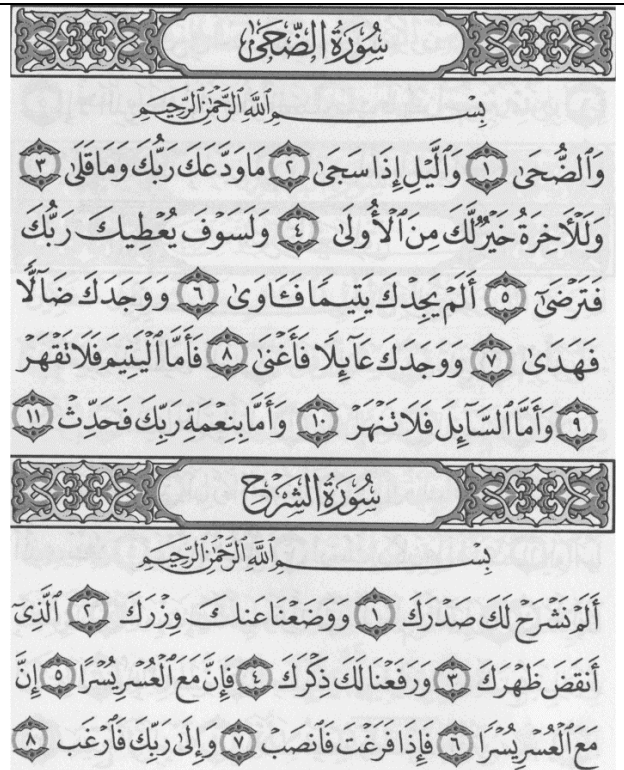 سُورَةُ الضُّحَىٰ
بِسْمِ ٱللَّهِ ٱلرَّحْمَٰنِ ٱلرَّحِيمِ
وَٱلضُّحَىٰ ١ وَٱلَّيْلِ إِذَا سَجَىٰ ٢ مَا وَدَّعَكَ رَبُّكَ وَمَا قَلَىٰ ٣
وَلَلْأَخِرَةُ خَيْرٌ لَّكَ مِنَ ٱلْأُولَىٰ ٤ وَلَسَوْفَ يُعْطِيكَ رَبُّكَ
فَتَرْضَىٰٓ ٥ أَلَمْ يَجِدْكَ يَتِيمًا فَـَٔاوَىٰ ٦ وَوَجَدَكَ ضَآلًّا
فَهَدَىٰ ٧ وَوَجَدَكَ عَآئِلًا فَأَغْنَىٰ ٨ فَأَمَّا ٱلْيَتِيمَ فَلَا تَقْهَرْ
٩ وَأَمَّا ٱلسَّآئِلَ فَلَا تَنْهَرْ ١٠ وَأَمَّا بِنِعْمَةِ رَبِّكَ فَحَدِّثْ ١١
سُورَةُ الشَّرْحِ
بِسْمِ ٱللَّهِ ٱلرَّحْمَٰنِ ٱلرَّحِيمِ
أَلَمْ نَشْرَحْ لَكَ صَدْرَكَ ١ وَوَضَعْنَا عَنكَ وِزْرَكَ ٢ ٱلَّذِىٓ
أَنقَضَ ظَهْرَكَ ٣ وَرَفَعْنَا لَكَ ذِكْرَكَ ٤ فَإِنَّ مَعَ ٱلْعُسْرِ يُسْرًا ٥ إِنَّ
مَعَ ٱلْعُسْرِ يُسْرًا ٦ فَإِذَا فَرَغْتَ فَٱنصَبْ ٧ وَإِلَىٰ رَبِّكَ فَٱرْغَب ٨